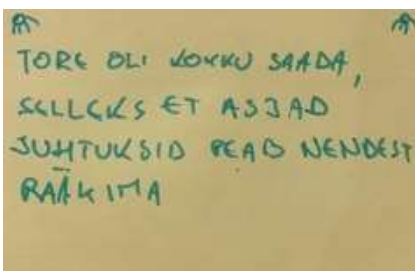 TORE OLI KOKKU SAADA,
SELLEKS ET ASJAD
JUHTUKSID PEAB NENDEST
RÄÄKIMA